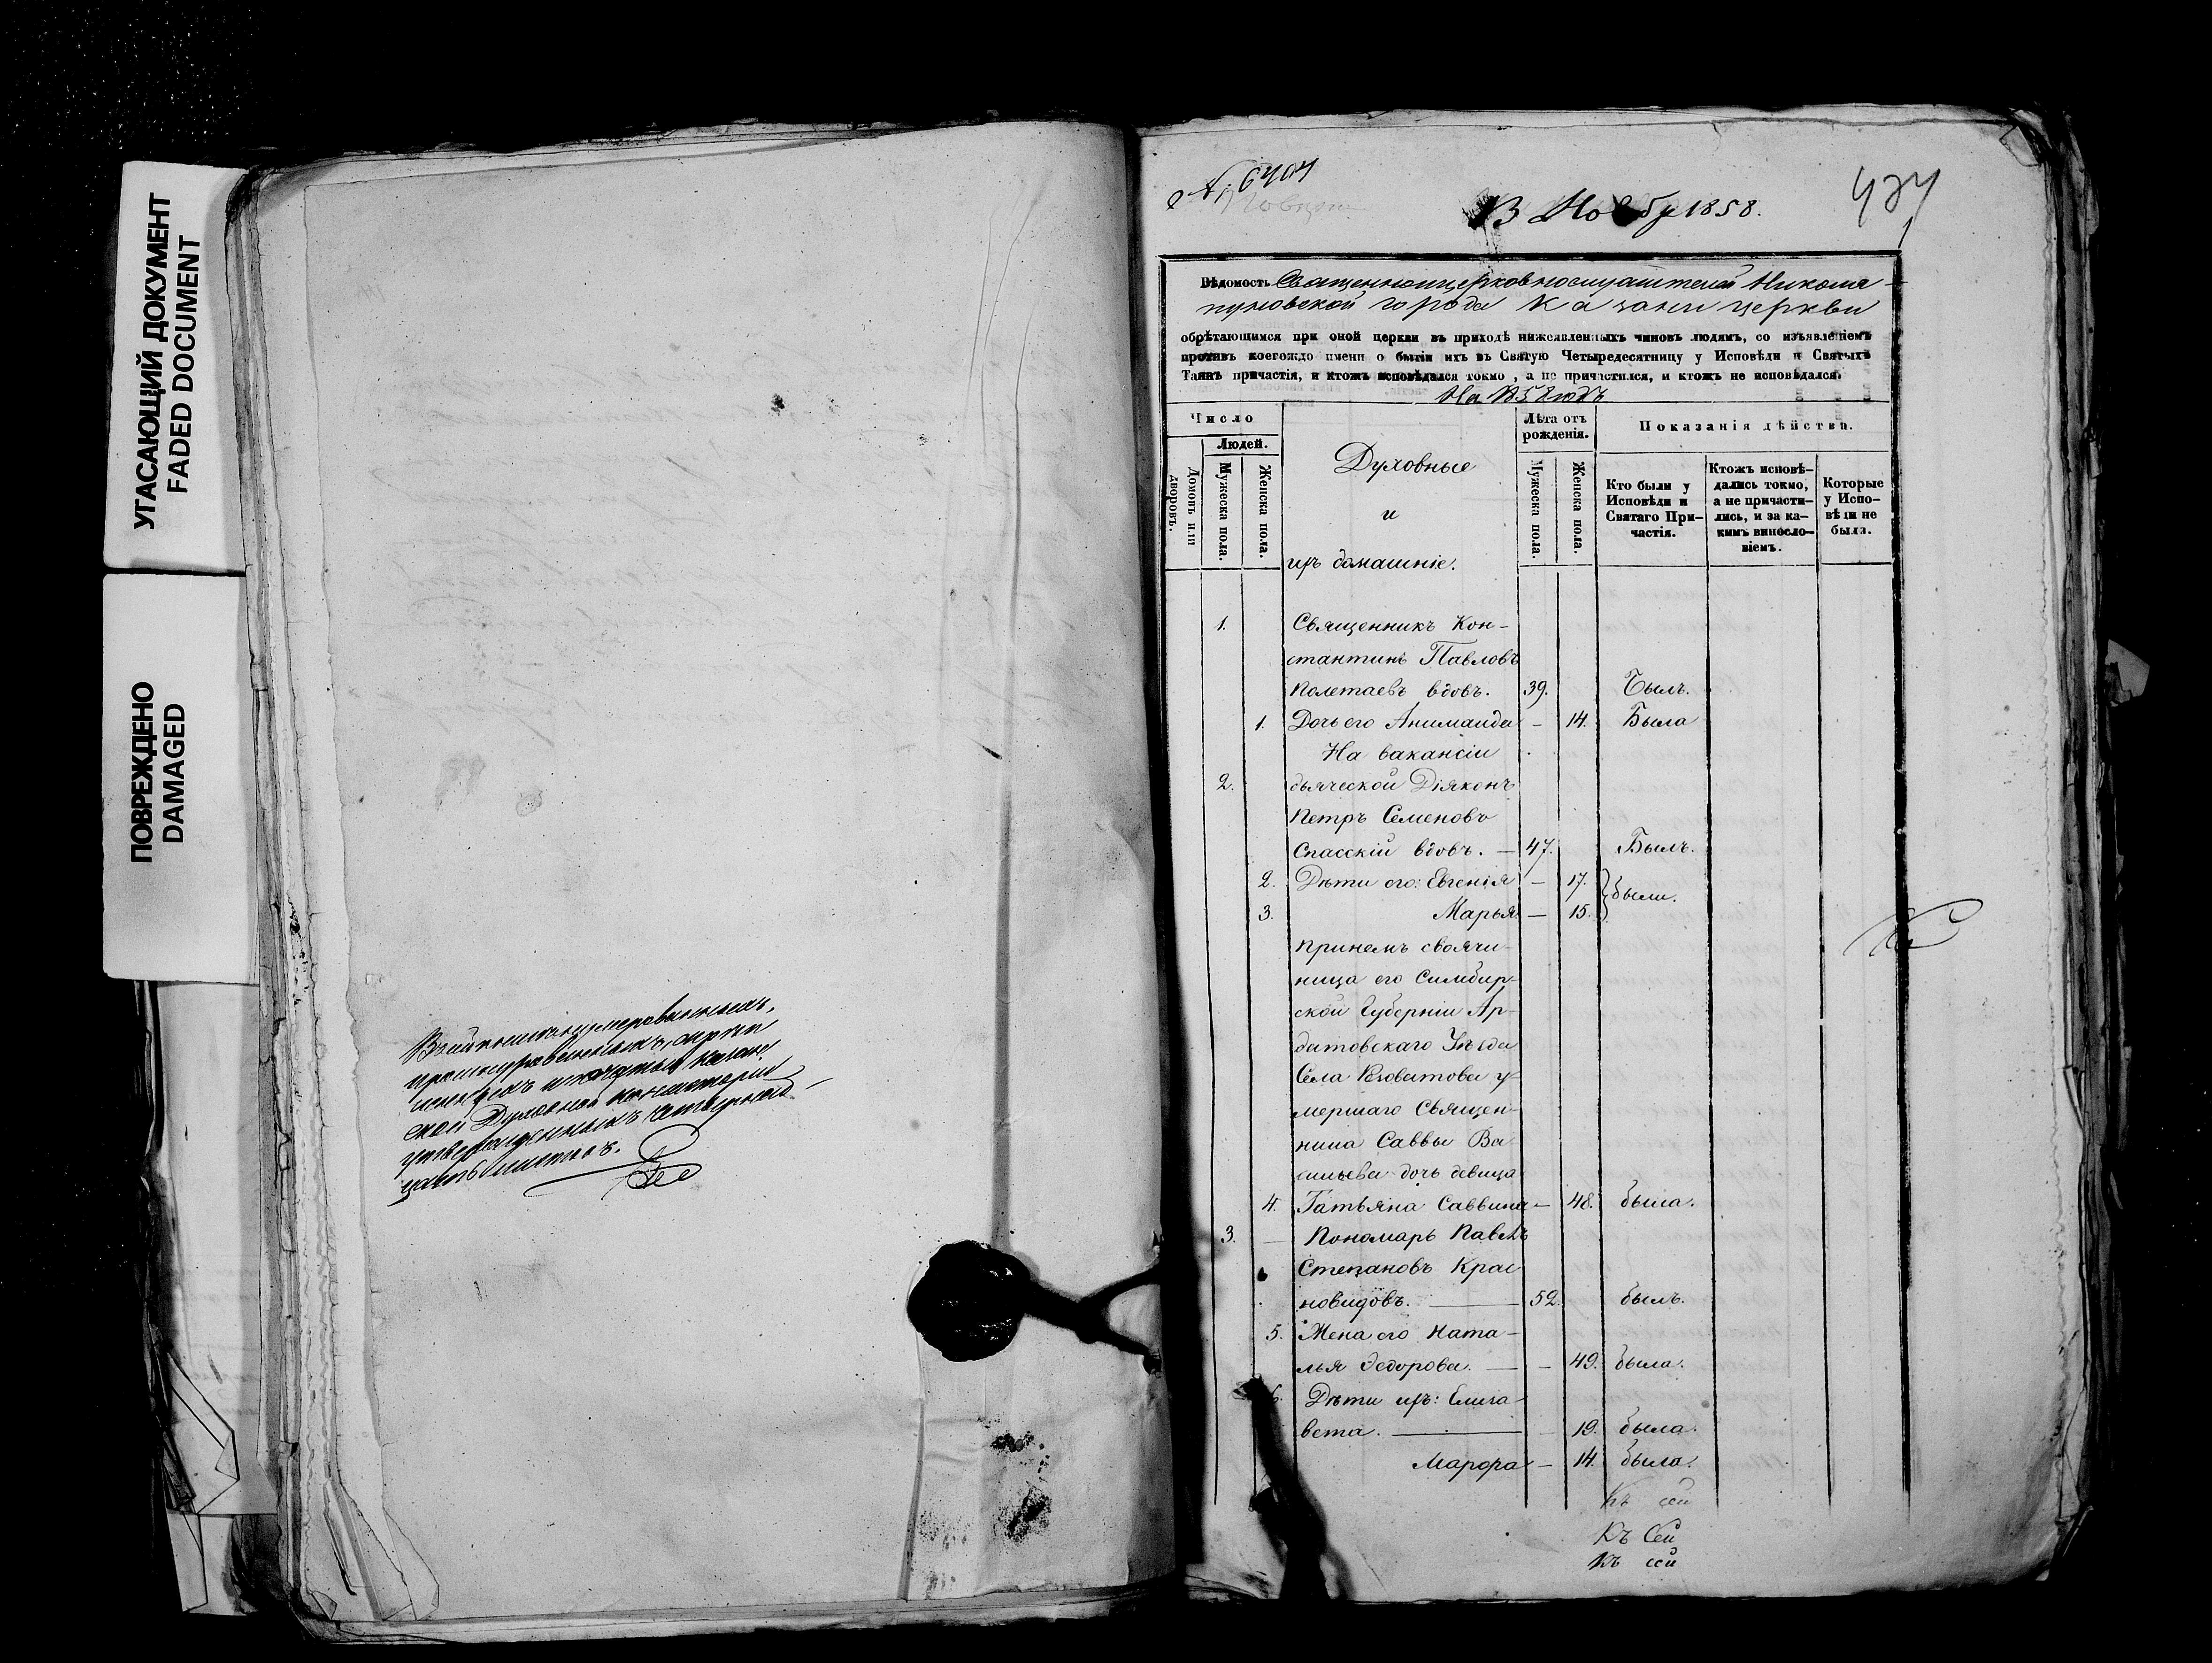 УГАСАЮЩИЙ ДОКУМЕНТ
FADED DOCUMENT
ПОВРЕЖДЕНО
DAMAGED
ской Духовной Консисторіи
листовъ.
1858.
Вѣдомость Священноицерковнослужителей Николя-
пуновской города Казани церкви
обрѣтающимся при оной церкви въ приходѣ нижеявленныхъ чиновъ людямъ, со изъявленіемъ
противъ коегождо имени о бытіи ихъ въ Святую Четыредесятницу у Исповѣди и Святыхъ
Таинъ причастія, и ктожъ исповѣдался токмо, а не причастился, и ктожъ не исповѣдался.
На 1858 годъ
Число
Людей.
Домовъ или дворовъ.
Мужеска пола.
Женска пола.
Духовные
и
ихъ домашніе.
Лѣта отъ
рожденія.
Мужеска пола.
Женска пола.
Показанія дѣйства.
Кто были у
Исповѣди и
Святаго При-
частія.
Ктожъ исповѣ-
дались токмо,
а не причасти-
лись, и за ка-
кимъ винosло-
віемъ.
Которые
у Испо-
вѣди не
были.
1. Священникъ Кон-
стантинъ Павловъ
Полетаевъ вдовъ. 39. Былъ.
1. Дочь его — 14. Была
На вакансіи
2. дьяческой Діяконъ
Петръ Семеновъ
Спасскій вдовъ. — 47. Былъ.
2. Дѣти его: Евгенія — 17. были.
3. Марья — 15.
При немъ своячи-
ница его Симбир-
ской Губерніи Ар-
датовскаго Уѣзда
Села у-
мершаго Священ-
ника Саввы Ва
сильева дочь девица
4. Татьяна Саввина — 48. была.
3. — Пономарь Павелъ
Степановъ Крас
новидовъ. — 52. былъ.
5. Жена его Ната-
лья Ѳедорова. — — 49. была.
6. Дѣти ихъ: Елиза-
вета. — 19. была.
Марѳа — 14. была.
Къ сей
Къ Сей
Къ сей